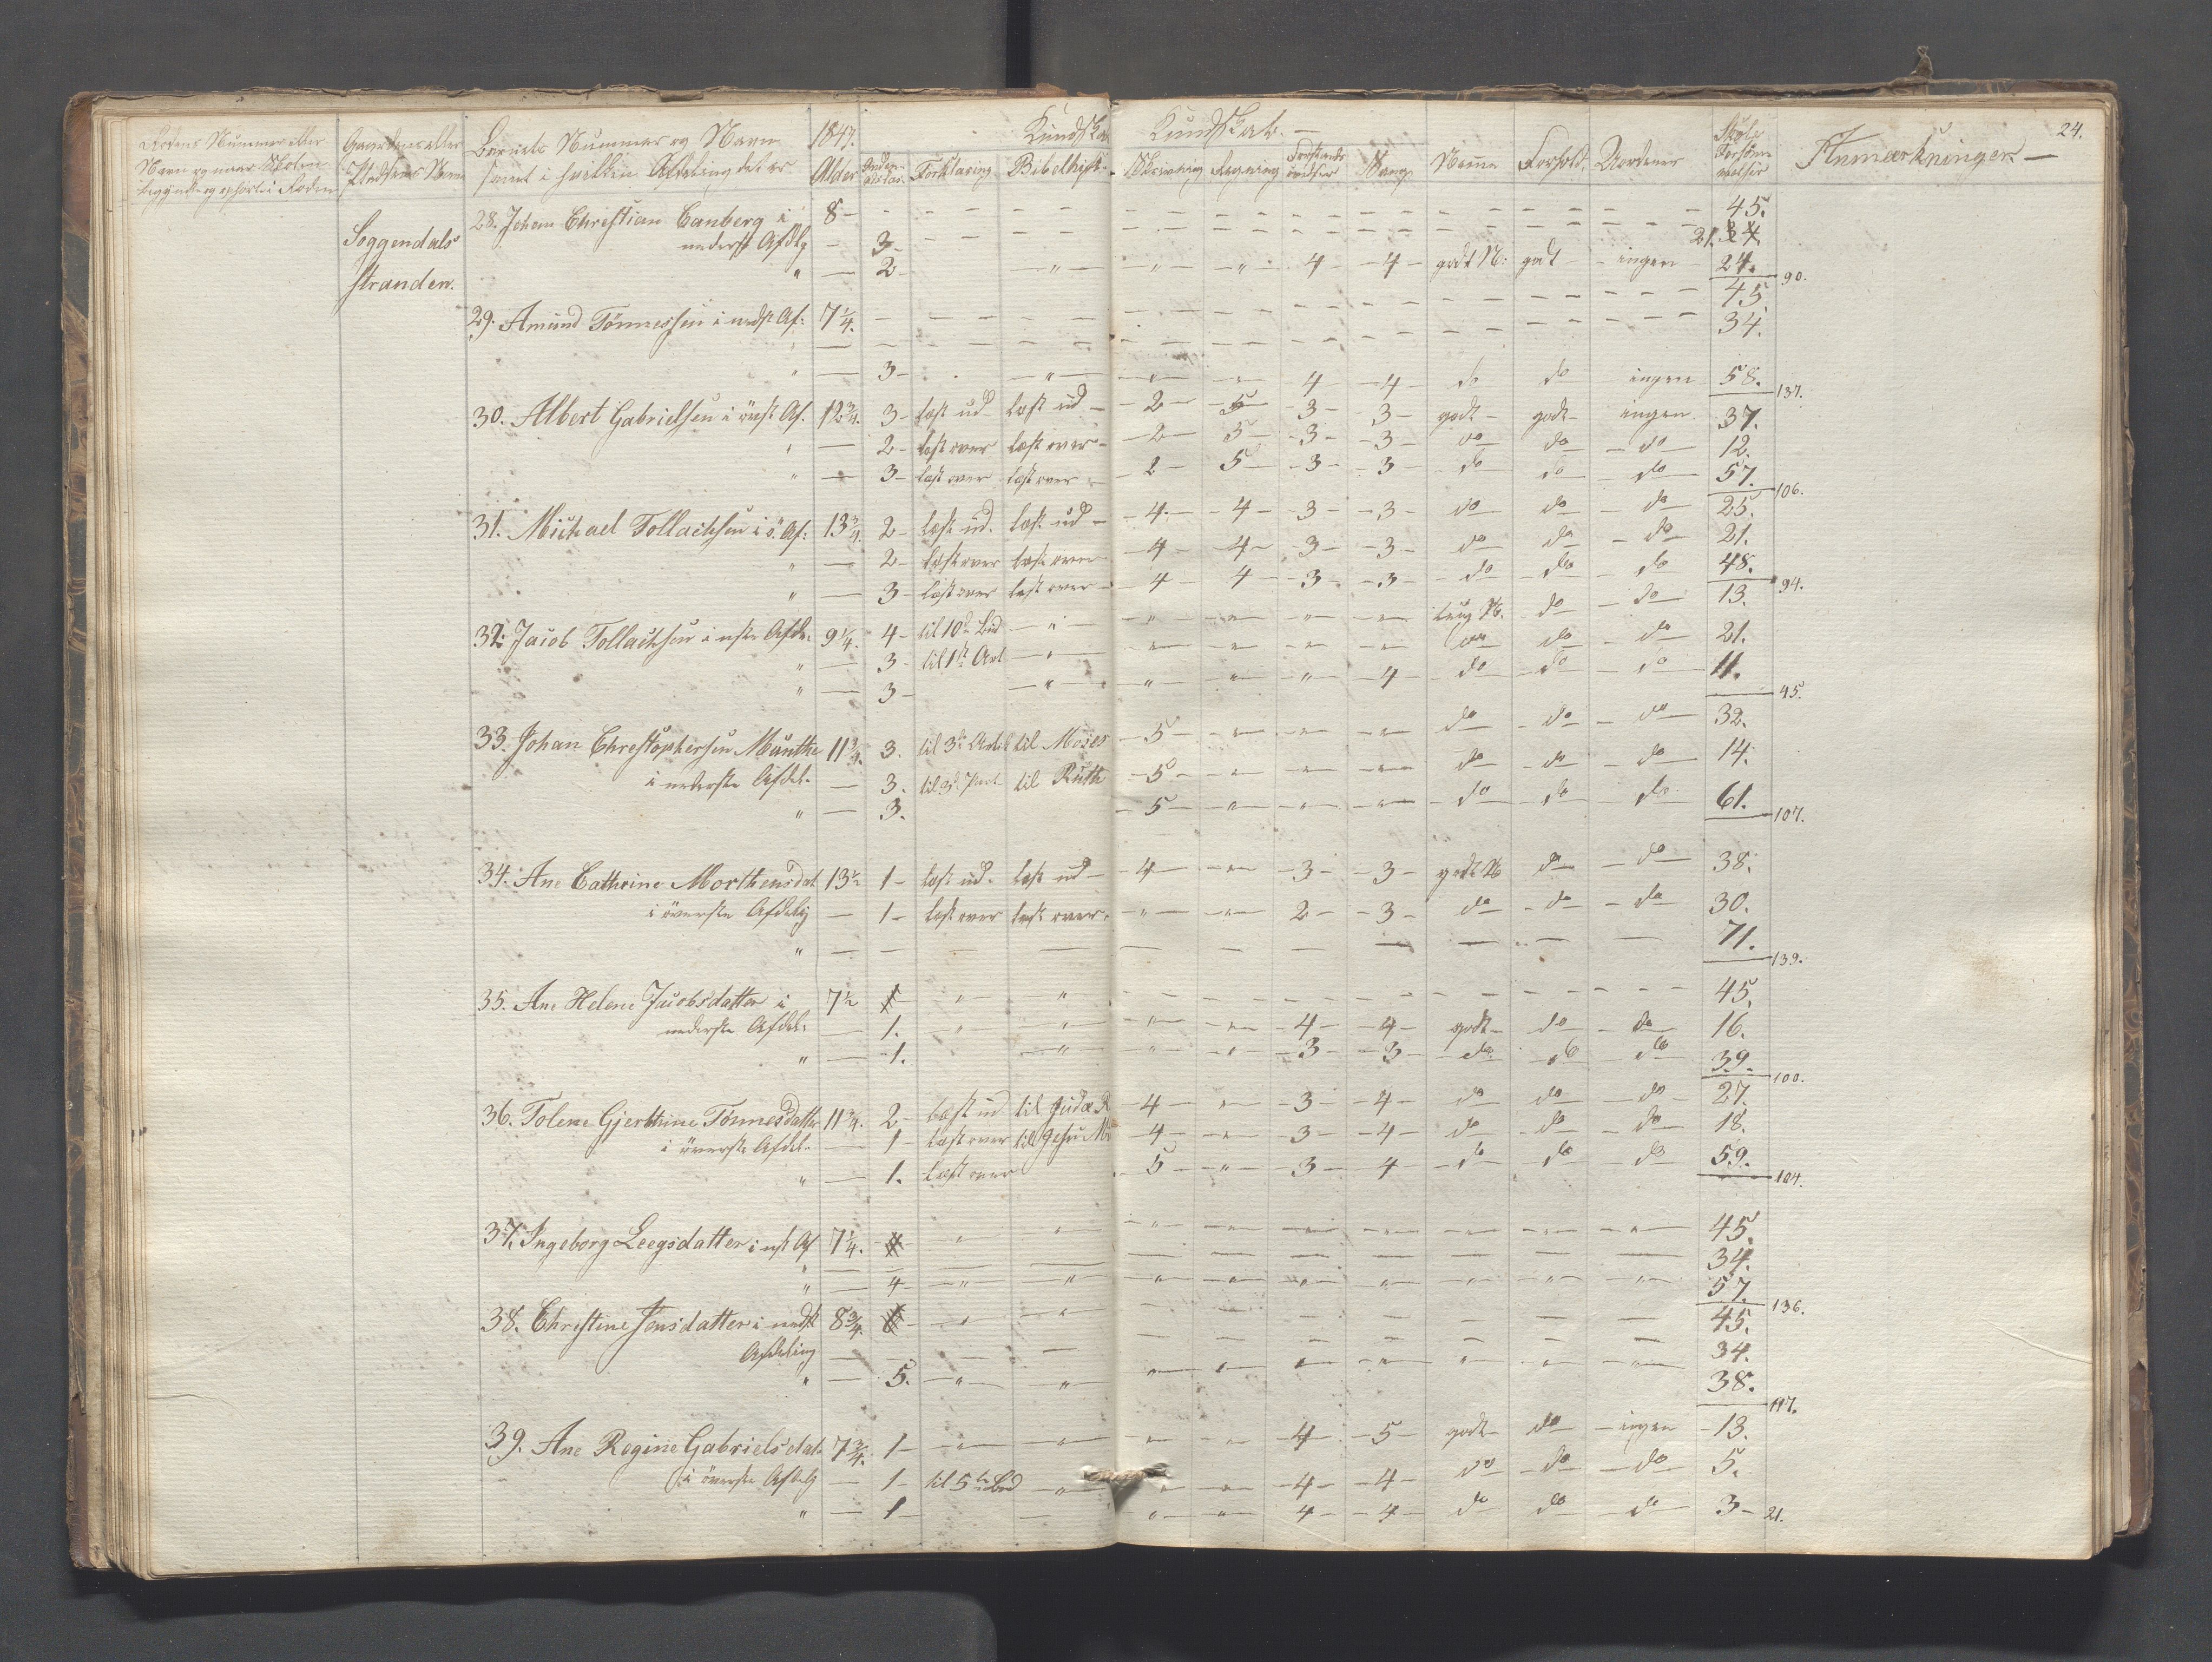 24.
Rodens Nummer eller Navn og naar Skolen begyndte og ophørte i Roden
Gaardens eller Pladsens Navn
Barnets Nummer og Navn samt i hvilken Afdeling det er
1847. Alder
Kundskab. —
Forklaring Bibelhist. Skrivning Regning Sang
Nemme Forhold Uordener Skole Forsømmelser Anmærkninger —
Soggendals
Stranden.
28. Johan Christian Canberg i 8 — 45.
nederst Afdlg — 3 — 21.
" — 2 — " — " — " — 4 — 4 — godt N: godt — ingen 24. 90.
29. Amund Tønnessen i nedst Af: 7 1/4. 45.
34.
" — 3 — " — " — " — 4 — 4 — do do ingen 58. 137.
30. Albert Gabrielsen i önst Af. 12 3/4. 3 — læst ud — læst ud — 2 — 5 — 3 — 3 — godt — godt — ingen 37.
" — 2 — læst over læst over — 2 — 5 — 3 — 3 — do do — do 12.
" — 3 — læst over læst over — 2 — 5 — 3 — 3 — do do — do 57. 106.
31. Michael Tollachsen i ö. Af: 13 3/4. 2 — læst ud. læst ud — 4 — 4 — 3 — 3 — do do — do 25.
" — 2 — læst over læst over — 4 — 4 — 3 — 3 — do do — do 21.
" — 3 — læst over læst over — 4 — 4 — 3 — 3 — do do — do 48. 94.
32. Jacob Tollachsen i nste Afde. 9 1/4. 4 — til 10de Bud — " — " — " — " — " — do — do 13.
" — 3 — til 1ste Art — " — " — " — " — " — do do — do 21.
" — 3 — " — " — " — " — 4 — do do — do 11. 45.
33. Johan Christophersen Münthe 11 3/4. 3. til 3die Artikl til Moses — 5 — " — " — " — do — do — do 32.
i nederste Afdel. — 3. til 3d Part til Ruth — 5 — " — " — " — do — do — do 14.
" — 3. — 5 — " — " — " — do — do do 61. 107.
34. Ane Cathrine Morthensdat 13 1/2 1 — læst ud. læst ud — 4 — " — 3 — 3 — godt N do — do 38.
i överste Afdelg — 1 — læst over læst over. — " — " — 2 — 3 — do — do — do 30.
" — 71. 139.
35. Ane Helene Jacobsdatter i 7 1/2 " " 45.
nederste Afdel: — 1. " " — " — " — 4 — 4 — godt — do — do 16.
" — 1. — " — " — " — 3 — 3 — do do do 39. 100.
36. Tolene Gjerthine Tönnesdatter 11 3/4. 2 — læst ud til Judæ R — 4 — " — 3 — 4 — do do — do 27.
i överste Afdel. — 1 — læst over til Jesu Mi — 4 — " — 3 — 4 — do do — do 18.
" — 1. læst over — 5 — " — 3 — 4 — do do — do 59. 104.
37. Ingeborg Leegsdatter i nst Af 7 1/4. " " — " — " — " — " — " — " — " 45.
34.
" — 4 — " — " — " — " — " — " — " — " — " 57. 136.
38. Christine Jensdatter i nedst 8 3/4. " " 45.
Afdeling 34.
" — 5. — " — " — " — " — " — " — " — " — " 38. 117.
39. Ane Regine Gabrielsdat 7 3/4. 1 — " — " — " — " — 4 — 5 — godt do — ingen — 13.
i överste Afdelg — 1 — til 5te Bud — " — " — " — 4 — 4 — do do — do 5.
" — 1 — " — " — 4 — 4 — do do — do 3 — 21.